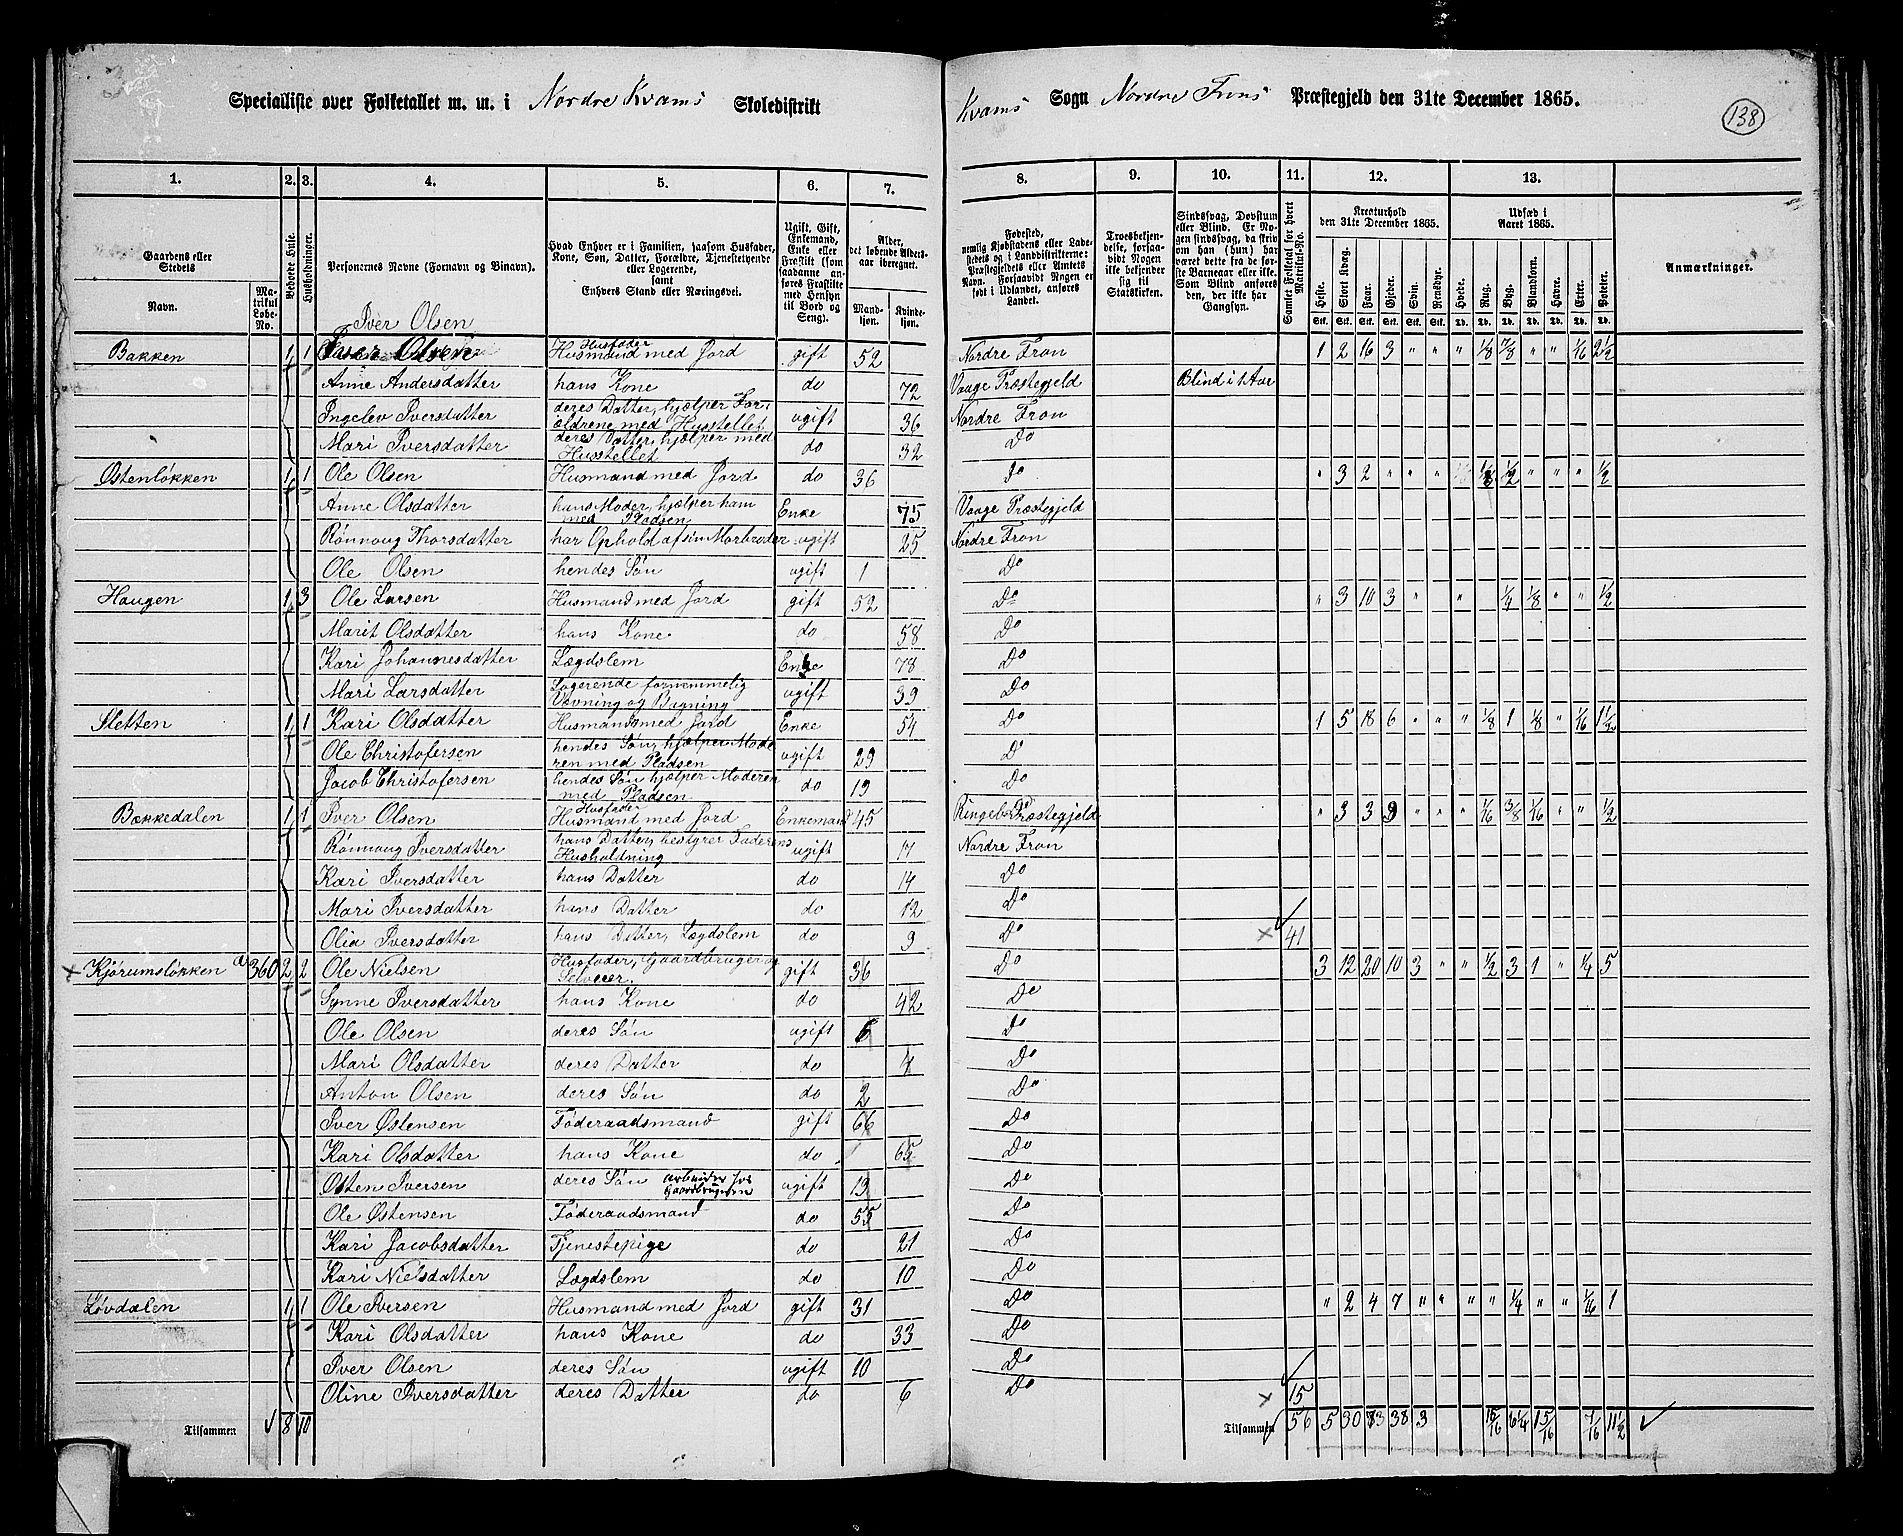 Specialliste over Folketallet m. m. i Nordre Kvams Skoledistrikt Kvams Sogn Nordre Frons Præstegjeld den 31te December 1865.
138
1. 2. 3. 4. 5. 6. 7. 8. 9. 10. 11. 12. 13.
Gaardens eller Stedets
Navn.
Matrikul Løbe-No.
Beboede Huse.
Husholdninger.
Personernes Navne (Fornavn og Binavn).
Hvad Enhver er i Familien, saasom Husfader, Kone, Søn, Datter, Forældre, Tjenestetyende eller Logerende, samt Enhvers Stand eller Næringsvei.
Ugift, Gift, Enkemand, Enke eller Fraskilt (som saadanne anføres Fraskilte med Hensyn til Bord og Seng).
Alder, det løbende Aldersaar iberegnet.
Mandkjøn. Kvindekjøn.
Fødested, nemlig Kjøbstadens eller Ladestedets eller i Landdistrikterne: Præstegjeldets eller Amtets Navn. Forsaavidt Nogen er født i Udlandet, anføres Landet.
Troesbekjendelse, forsaavidt Nogen ikke bekjender sig til Statskirken.
Sindssvag, Døvstum eller Blind. Er Nogen sindssvag, da skriv om han (hun) har været dette fra de første Barneaar eller ikke. Som Blind anføres den, der ikke har Gangsyn.
Samlet Folketal for hvert Matrikuls-No.
Kreaturhold den 31te December 1865.
Heste. Stort Kvæg. Faar. Gjeder. Svin. Rensdyr.
Udsæd i Aaret 1865.
Hvede. Rug. Byg. Blandkorn. Havre. Erter. Poteter.
Anmærkninger.
Iver Olsen
Bakken 1 1 Iver Olsen Husfader Husmand med Jord gift 52 Nordre Fron 1 2 16 3 " " " 1/8 7/8 " " 1/16 2 1/2
Anne Andersdatter hans Kone do 72 Vaage Præstegjeld Blind i 1 Aar
Ingelev Iversdatter deres Datter, hjælper Forældrene med Husstellet ugift 36 Nordre Fron
Mari Iversdatter deres Datter, hjælper med Husstellet do 32 Do
Østenløkken 1 1 Ole Olsen Husmand med Jord do 36 Do " 3 2 " " " 1/8 1/2 " " " 1/2
Anne Olsdatter hans Moder, hjælper ham med Pladsen Enke 75 Vaage Præstegjeld
Rønnoug Thorsdatter har Ophold af sin Morbroder ugift 25 Nordre Fron
Ole Olsen hendes Søn ugift 1 Do
Haugen 1 3 Ole Larsen Husmand med Jord gift 52 Do " 3 10 3 " " " 1/4 1/8 " " 1/2
Marit Olsdatter hans Kone do 58 Do
Kari Johannesdatter Lægdslem Enke 78 Do
Mari Larsdatter Logerende fornemmelig Vævning og Bagning ugift 39 Do
Sletten 1 1 Kari Olsdatter Husmand med Jord Enke 54 Do 1 5 18 6 " " " 1/8 1 1/8 " 1/16 1 1/2
Ole Christofersen hendes Søn, hjælper Moderen med Pladsen ugift 29 Do
Jacob Christofersen hendes Søn hjælper Moderen med Pladsen do 19 Do
Bækkedalen 1 1 Iver Olsen Husfader Husmand med Jord Enkemand 45 Ringebo Præstegjeld " 3 3 3 " " " 1/16 3/8 1/16 " " 1/2
Rønnoug Iversdatter hans Datter, bestyrer Faderens Husholdning ugift 17 Nordre Fron
Kari Iversdatter hans Datter do 14 Do
Mari Iversdatter hans Datter do 12 Do
Olia Iversdatter hans Datter, Lægdslem do 9 Do × 41
× Kjørumsløkken a 360 2 2 Ole Nielsen Husfader, Gaardbruger og Selveier gift 36 Do 3 12 20 10 3 " " 1/2 3 1 " 1/4 5
Synne Iversdatter hans Kone do 42 Do
Ole Olsen deres Søn ugift 6 Do
Mari Olsdatter deres Datter do 4 Do
Anton Olsen deres Søn do 2 Do
Iver Østensen Føderaadsmand gift 66 Do
Kari Olsdatter hans Kone do 65 Do
Østen Iversen deres Søn arbeider for Gaardbrugeren ugift 19 Do
Ole Østensen Føderaadsmand do 55 Do
Kari Jacobsdatter Tjenestepige do 21 Do
Kari Nielsdatter Lægdslem do 10 Do
Løvdalen 1 1 Ole Iversen Husmand med Jord gift 31 Do " 2 4 7 " " " " 1/4 " " 1/16 1
Kari Olsdatter hans Kone do 33 Do
Iver Olsen deres Søn ugift 10 Do
Oline Iversdatter deres Datter do 6 Do × 15
Tilsammen 8 10 Tilsammen 56 5 30 73 38 3 15/16 6 1/4 1 5/16 7/16 11 1/2